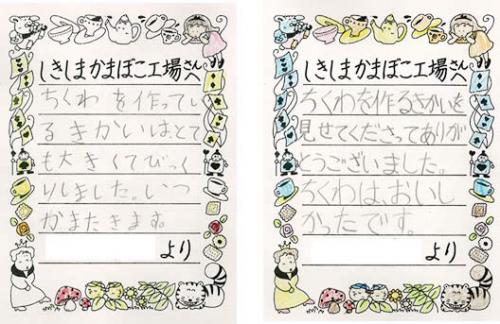 しきしまかまぼこ工場さんへ
ちくわを作ってい
るきかいはとて
も大きくてびっく
りしました。いつ
かまたきます。
より
しきしまかまぼこ工場さんへ
ちくわを作るきかいを
見せてくださってありが
とうございました。
ちくわは、おいし
かったです。
より